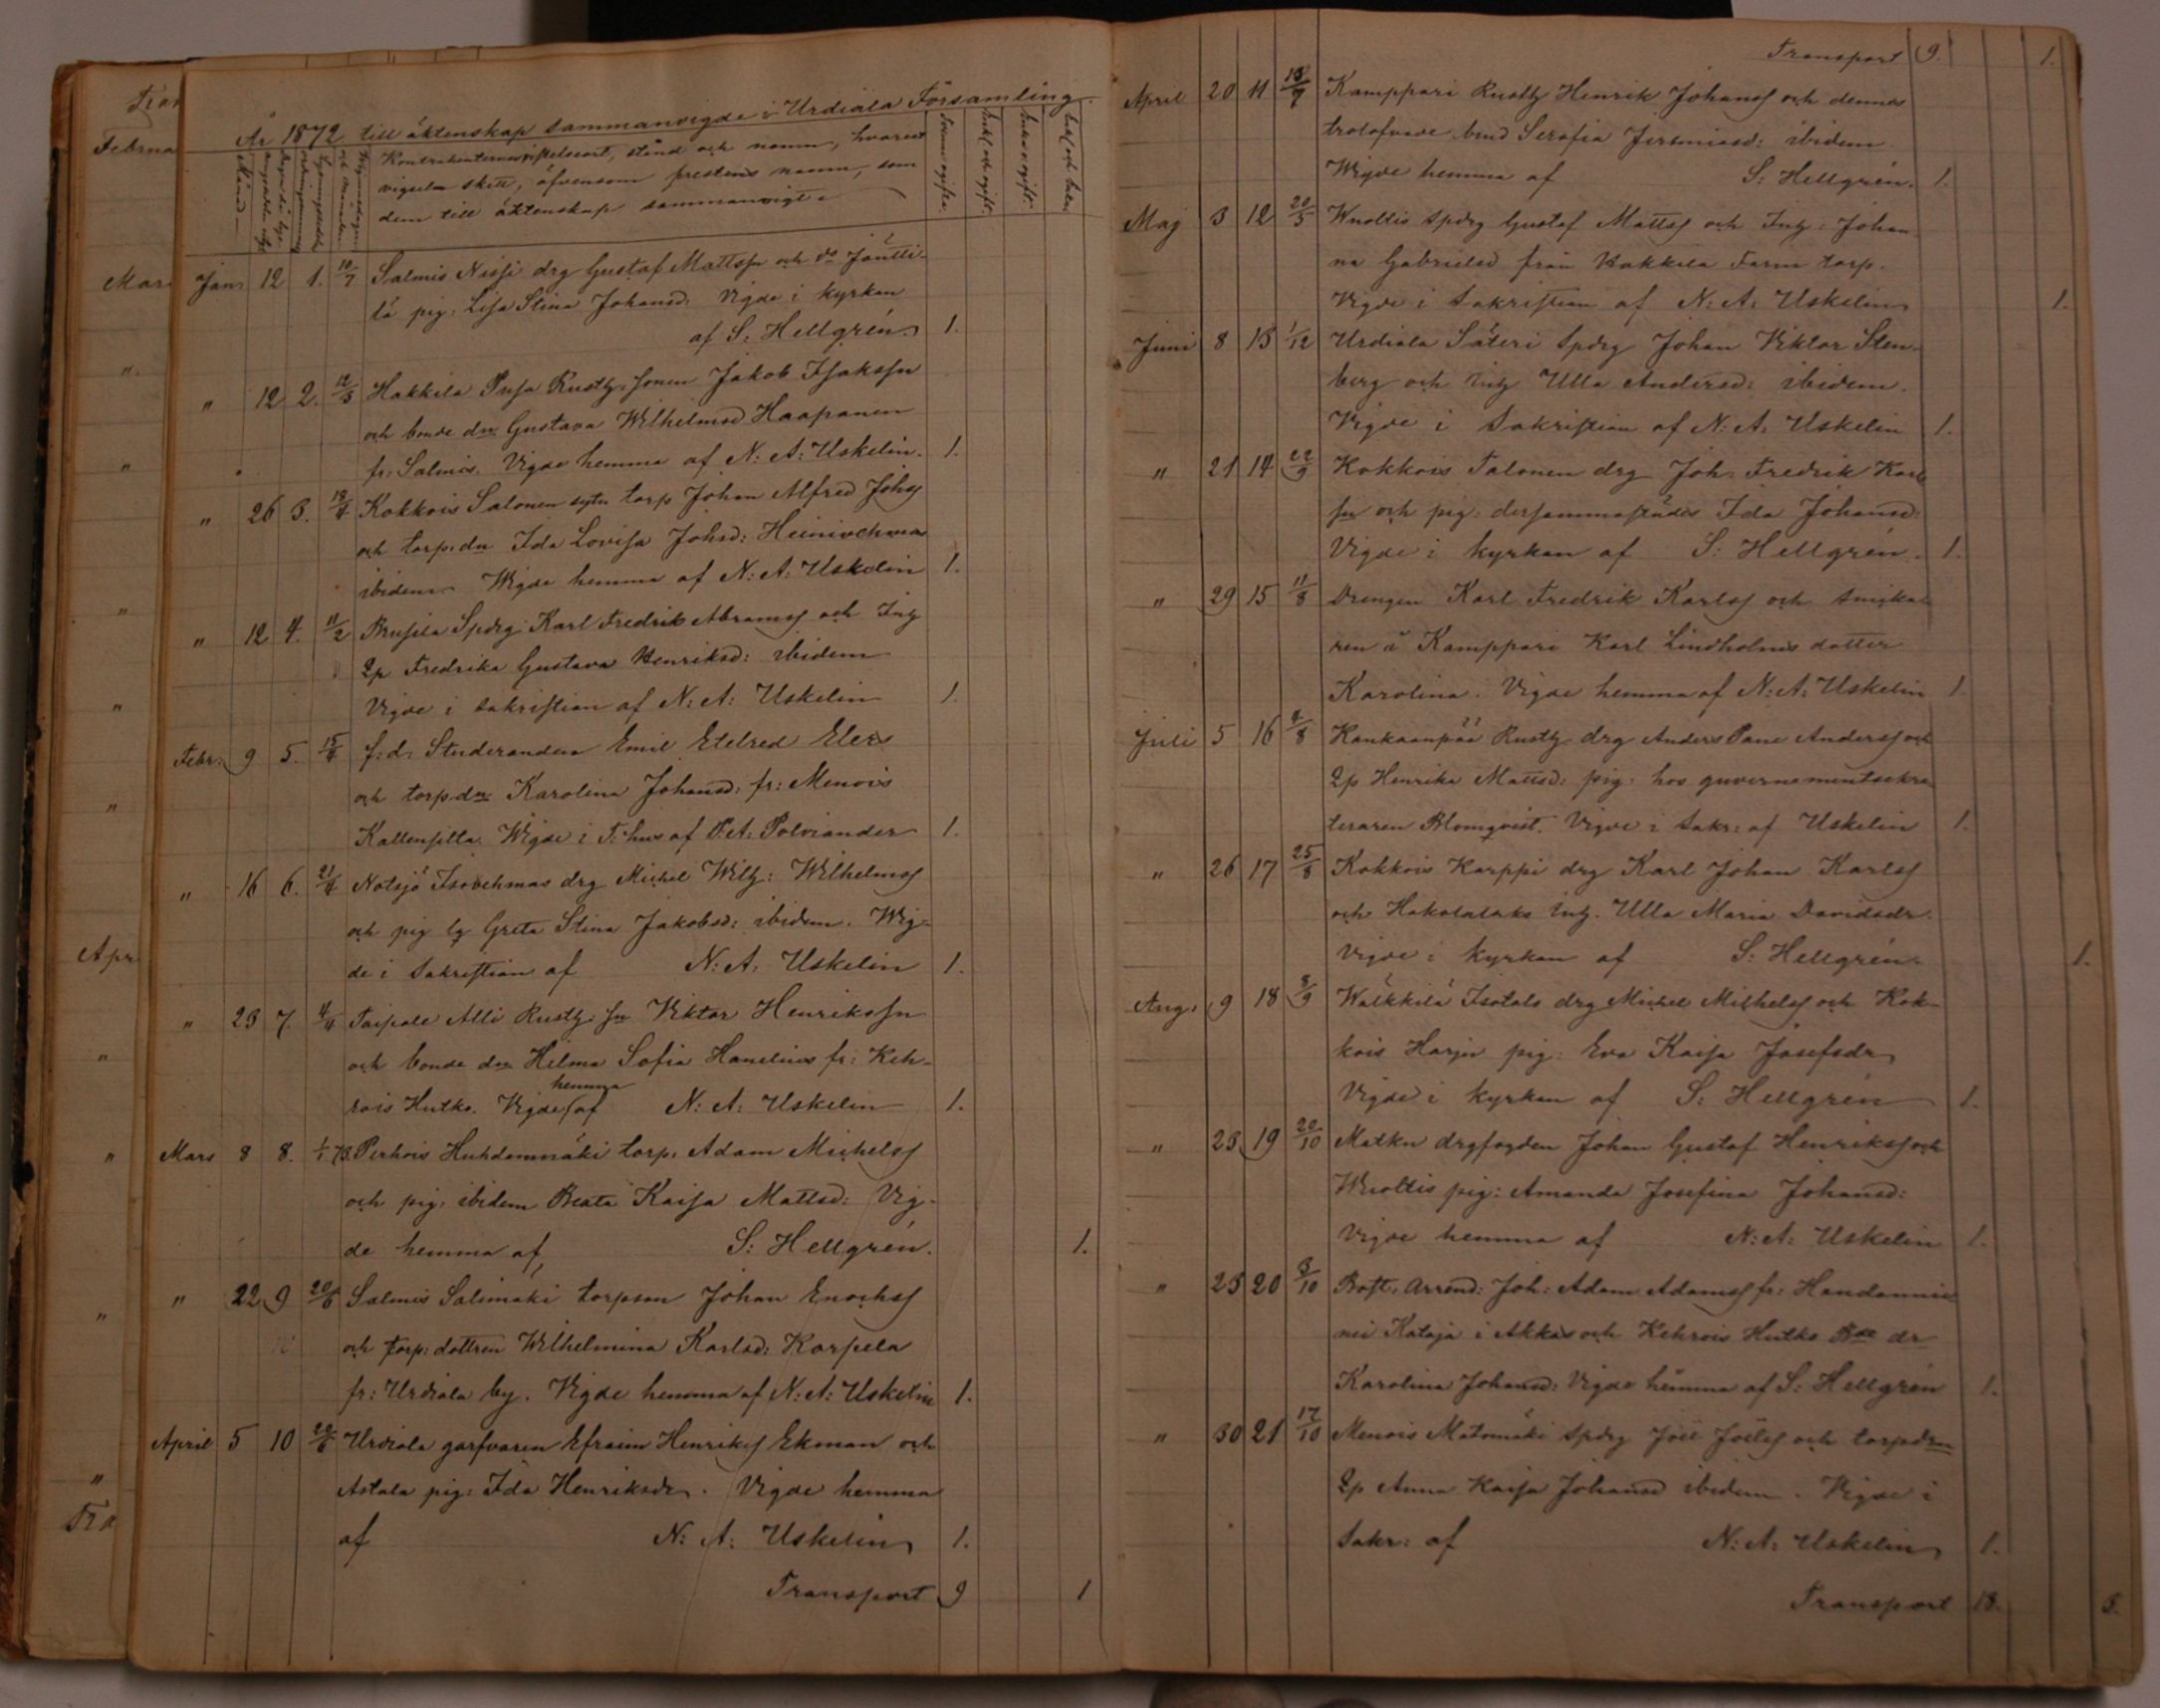 År 1872 till äktenskap sammanvigde i Urdiala Församling.
Månad
Kontrahenternes vistelseort, stånd och namn, hvarest
vigseln skett, äfvensom prestens namn, som
dem till äktenskap sammanvigt
Jan: 12 1. 10/7 Salmis Nissi drg Gustaf Mattssn och
lä pig: Lisa Stina Johansd. Vigde i kyrkan
af S: Hellgrén. 1.
" 12 2. 12/3 Hakkila Pusa Rusth: sonen Jakob Isakssn
och bonde dn Gustava Wilhelmsd Haapanen
fr: Salmis. Vigde hemma af N: A: Uskelin. 1.
" 26 3. 18/4 Kokkois Salonen torp Johan Alfred Johss
och torp: dn Ida Lovisa Johsd: Heinivehmas
ibidem Wigde hemma af N: A: Uskelin 1.
" 12 4. 11/2 Brusila Spdrg: Karl Fredrik Abramss och Inh
Qp Fredrika Gustava Henriksd: ibidem
Vigde i sakristian af N: A: Uskelin 1.
Febr: 9 5. 15/4 f: d: Studeranden Emil Etelred Elers
och torp-dn Karolina Johansd: fr: Menois
Kallensilta. Wigde i T: hus af Polviander 1.
" 16 6. 21/4 Notsjö Isovehmas drg Michel Wilh: Wilhelmss
och pig Greta Stina Jakobsd: ibidem. Wig-
de i Sakristian af N: A: Uskelin 1.
" 23 7. 4/4 Taipale Alli Rusth: sn Viktor Henrikssn
och bonde dn Helma Sofia Hanelius fr: Keh-
rois Hutko. Vigde hemma af N: A: Uskelin 1.
Mars 8 8. 1/1 73. Perhois Huhdanmäki torp: Adam Michelss
och pig: ibidem Beata Kaisa Mattsd: Vig-
de hemma af, S: Hellgrén. 1.
" 22 9 20/6 Salmis Salimäki torpson Johan Enochss
och torp: dottren Wilhelmina Karlsd: Korpela
fr: Urdiala by. Vigde hemma af N: A: Uskelin 1.
April 5 10 22/6 Urdiala garfvaren Efraim Henrikss Ekman och
Astala pig: Ida Henriksdr. Vigde hemma
af N: A: Uskelin 1.
Transport 9 1
Transport 9. 1.
April 20 11 13/7 Kamppari Rusth Henrik Johanss och dennes
trolofvade brud Serafia Jeremiasd: ibidem
Wigde hemma af S: Hellgrén. 1.
Maj 3 12 20/5 Wnoltis Spdrg Gustaf Mattss och Inh: Johan-
na Gabrielsd från Hakkila Farm torp.
Vigde i Sakristian af N: A: Uskelin 1.
Juni 8 13 1/12 Urdiala Säteri Spdrg Johan Viktor Sten-
berg och Inh Ulla Andersd: ibidem.
Vigde i Sakristian af N: A: Uskelin 1.
" 21 14 22/9 Kokkois Talonen drg Joh: Fredrik Karls
sn och pig: dersammastädes Ida Johansd:
Vigde i kyrkan af S: Hellgrén. 1.
" 29 15 11/8 Drengen Karl Fredrik Karlss och Snicka-
ren å Kamppari Karl Lindholms dotter
Karolina. Vigde hemma af N: A: Uskelin 1
Juli 5 16 4/8 Kankaanpää Rusth drg Anders Pane Anderss och
Qp Henrika Mattsd: pig: hos guvernementsekre
teraren Blomqvist. Vigde i Sakr: af Uskelin 1.
" 26 17 25/8 Kokkois Karppi drg Karl Johan Karlss
och Hakolalaks Inh. Ulla Maria Davidsdr.
Vigde i kyrkan af S: Hellgrén. 1.
Aug: 9 18 8/9 Wälkkilä Isotalo drg Michel Michelss och Kok-
kois Harju pig: Eva Kaisa Josefsdr
Vigde i kyrkan af S: Hellgrén 1.
" 23 19 20/10 Matku drgfogden Johan Gustaf Henrikss och
Wnoltis pig: Amanda Josefina Johansd:
Vigde hemma af N: A: Uskelin 1.
" 23 20 8/10 Bost: Arrend: Joh: Adam Adamss fr: Handannie
mi Kataja i Akkas och Kehrois Hutko Bde dr
Karolina Johansd: Vigde hemma af S: Hellgrén 1.
" 30 21 17/10 Menois Matomäki Spdrg Joel Joelss och torpdrn
Qp Anna Kaisa Johansd ibidem. Vigde i
Sakr: af N: A: Uskelin 1.
Transport 18. 3.